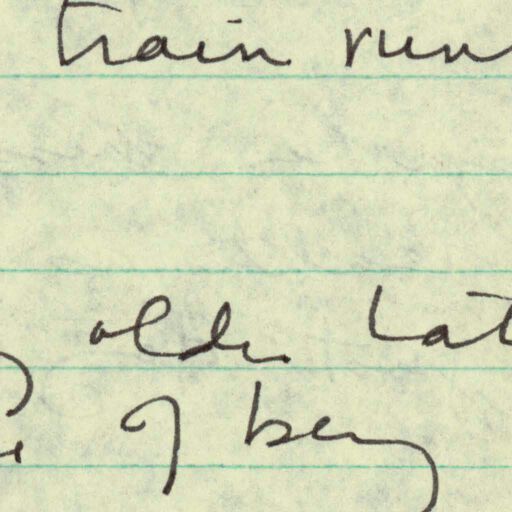 train run
older hat
of being